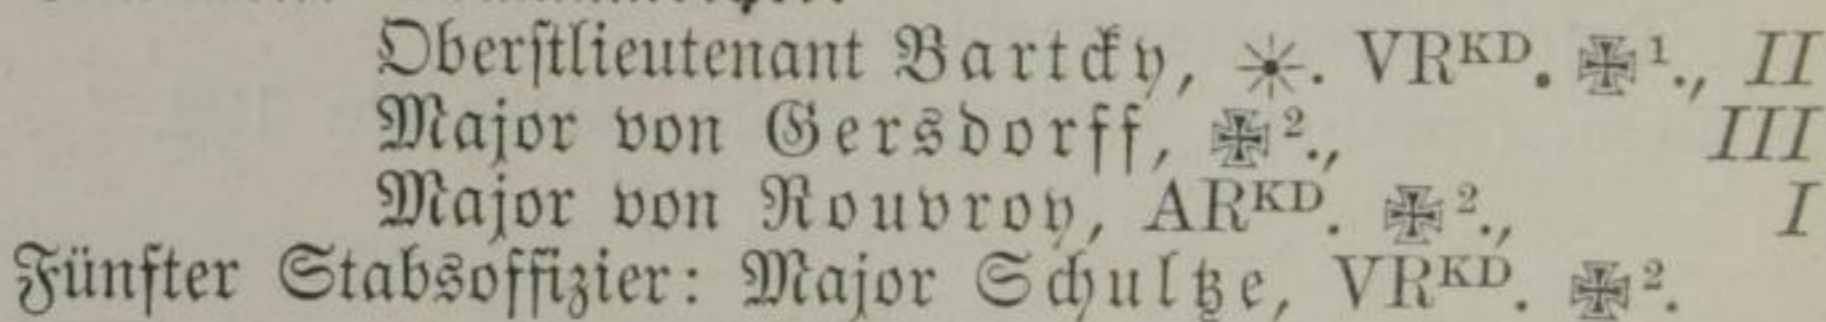 Oberſtlieutenant Bartcky, ✳. VRᴷᴰ. ✠¹., II
Major von Gersdorff, ✠²., III
Major von Rouvroy, ARᴷᴰ. ✠²., I
Fünfter Stabsoffizier: Major Schultze, VRᴷᴰ. ✠².